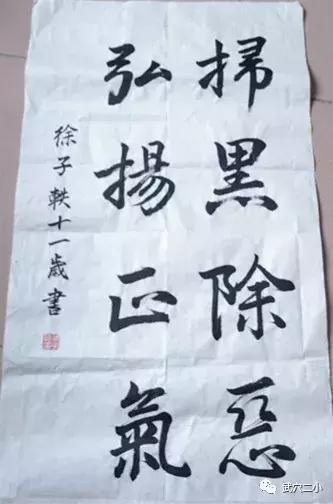 掃黑除惡
弘揚正氣
徐子軼十一歲書
武穴二小